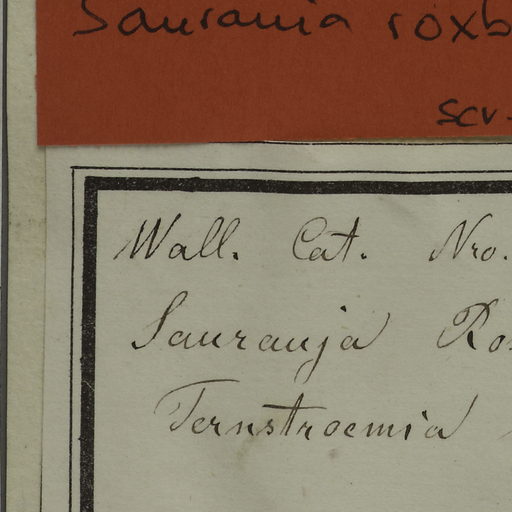 Saurauia roxb
scr.
Wall. Cat. Nro.
Saurauja Ro
Ternstroemia